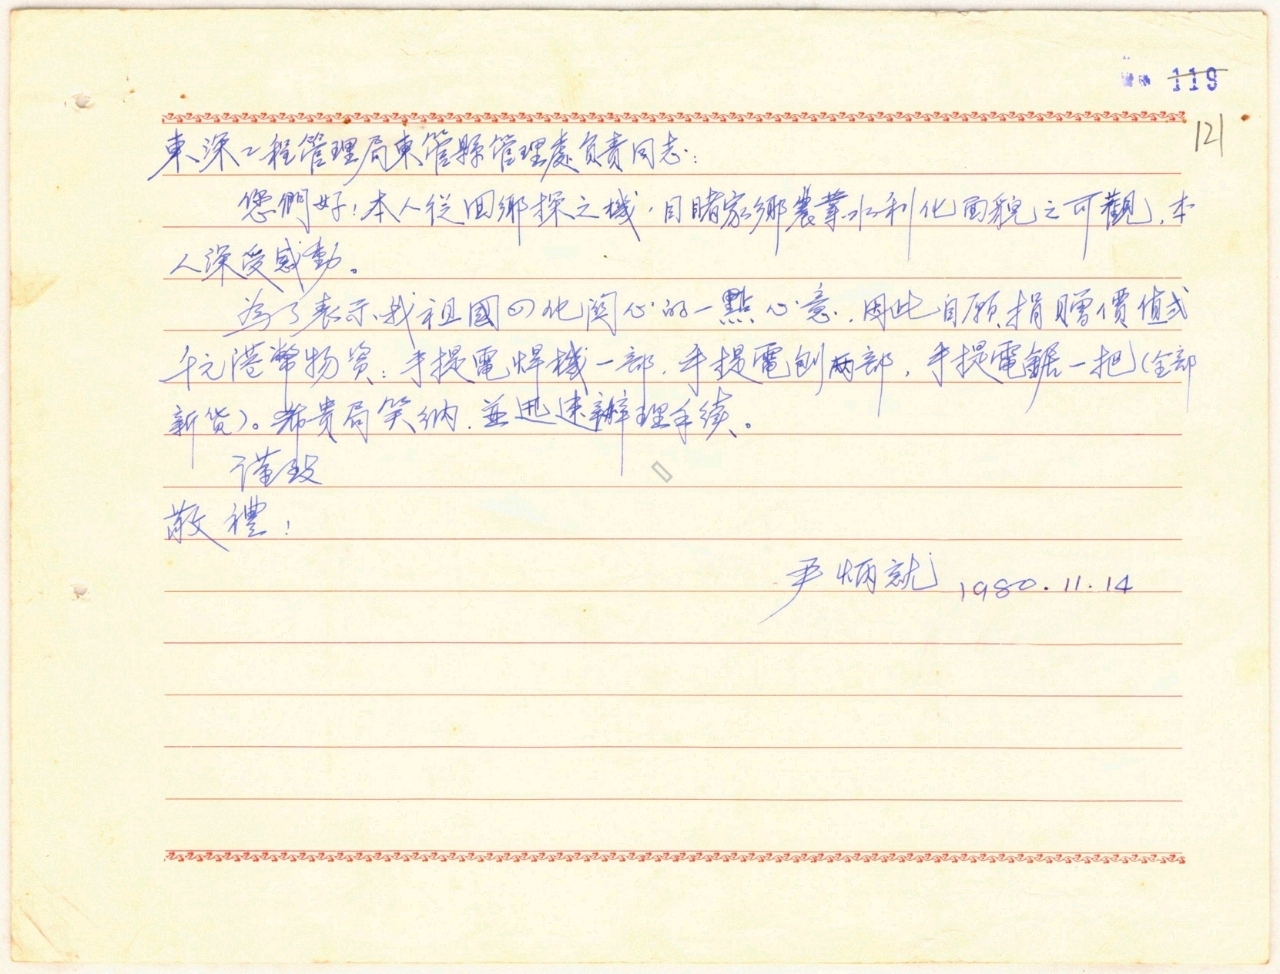 119
121
東深工程管理局東管縣管理處負責同志：
您們好！本人從回鄉探之機，目睹家鄉農業水利化面貌之可觀，本
人深受感動。
為了表示我祖國四化関心的一點心意，因此自願捐贈價值弍
千元港幣物資：手提電焊機一部，手提電刨两部，手提電鋸一把（全部
新货）。希貴局笑纳，並迅速辦理手续。
谨致
敬禮！
尹炳就 1980.11.14